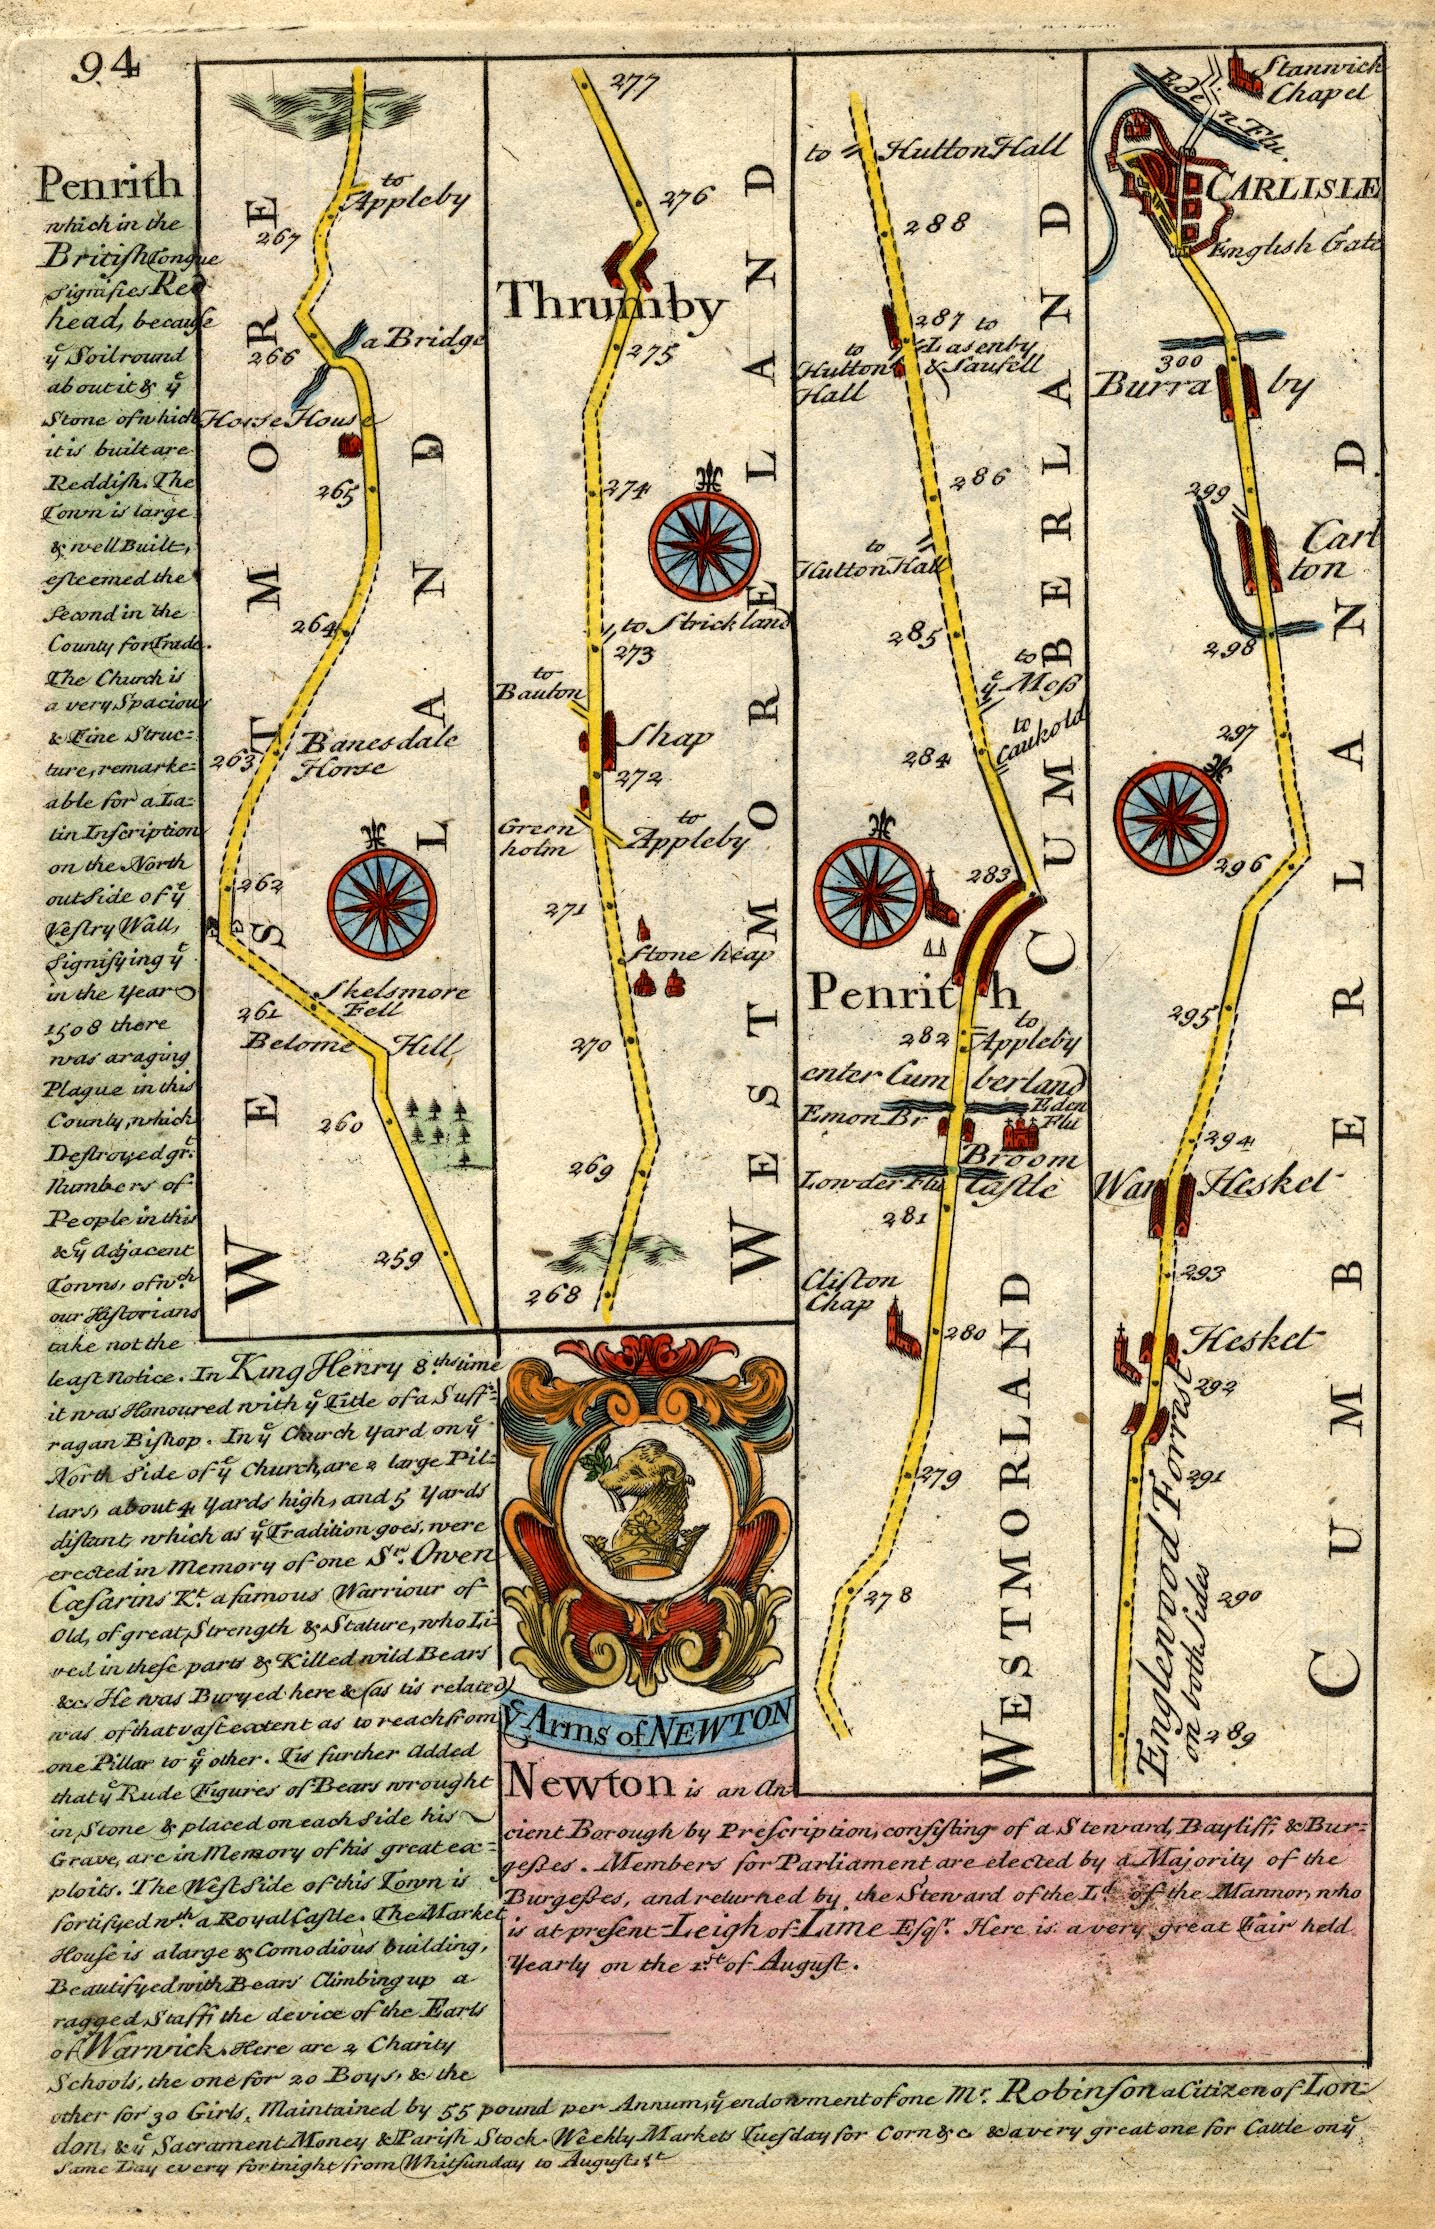 94
Penrith
which in the
Britiſh Tongue
Signifies Red
head, becauſe
yͤ Soil round
about it & yͤ
Stone of which
it is built are
Reddiſh. The
Town is large
& well Built,
eſteemed the
Second in the
County for Trade.
The Church is
a very Spacious
& Fine Struc=
ture, remarke=
able for a La=
tin Inſcription
on the North
outside of yͤ
Veſtry Wall,
Signifying yͤ
in the Year
1508 there
was a raging
Plague in this
County, which
Deſtroyed grͭ.
Numbers of
People in this
& yͤ Adjacent
Towns, of wᶜʰ
our Hiſtorians
take not the
leaſt Notice. In King Henry 8.ᵗʰˢ time
it was Honoured with yͤ Title of a Suff=
ragan Biſhop. In yͤ Church Yard on yͤ
North Side of yͤ Church, are 2 large Pil=
lars, about 4 Yards high, and 5 Yards
diſtant, which as yͤ Tradition goes, were
erected in Memory of one Sʳ. Owen
Cæſarins Kᵗ. a famous Warriour of
Old, of great Strength & Stature, who Li=
ved in theſe parts & Killed wild Bears
&c. He was Buryed here & (as tis related)
was of that vaſt extent as to reach from
one Pillar to yͤ other. Tis further Added
that yͤ Rude Figures of Bears wrought
in Stone & placed on each Side his
Grave, are in Memory of his great ex=
ploits. The Weſt Side of this Town is
fortifyed wᵗʰ. a Royal Caſtle. The Market
Houſe is a large & Comodious building,
Beautifyed with Bears Climbing up a
ragged Staff, the device of the Earls
of Warwick. Here are 2 Charity
Schools, the one for 20 Boys, & the
other for 30 Girls, Maintained by 55 pound per Annum, yͤ endowment of one Mʳ. Robinſon a Citizen of Lon=
don, & yͤ Sacrament Money & Pariſh Stock. Weekly Markets Tueſday for Corn &c. & a very great one for Cattle on yͤ
Same Day every fortnight from Whitſunday to Auguſt 1ˢᵗ
to
Appleby
267
266
a Bridge
Horse House
265
264
263
Banesdale
Horse
262
Skelsmore
Fell
261
Belome Hill
260
259
WESTMORLAND
277
276
Thrumby
275
274
to Strickland
273
to
Bauton
Shap
272
Green
holm
to
Appleby
271
Stone heap
270
269
268
WESTMORELAND
to Hutton Hall
288
287
to
Lasenby
& Saufell
to
Hutton
Hall
286
to
Hutton Hall
285
to
yͤ Moß
to
Caukold
284
283
Penrith
282
to
Appleby
enter Cumberland
Eden
Flu
Emon Br
Broom
Caſtle
Lowder Flu
281
Clifton
Chap
280
279
278
CUMBERLAND
WESTMORLAND
Stanwick
Chapel
Eden Flu.
CARLISLE
English Gate
300
Burraby
299
Carl
ton
298
297
296
295
294
War Hesket
293
Hesket
292
291
Englewood Forrist
on both Sides
290
289
CUMBERLAND
yͤ Arms of NEWTON
Newton is an An=
cient Borough by Preſcription, conſiſting of a Steward, Bayliff, & Bur=
geßes. Members for Parliament are elected by a Majority of the
Burgeßes, and returned by the Steward of the Lᵈ. of the Mannor, who
is at preſent Leigh of Lime Eſqʳ. Here is a very great Fair held
Yearly on the 1.ˢᵗ of Auguſt.